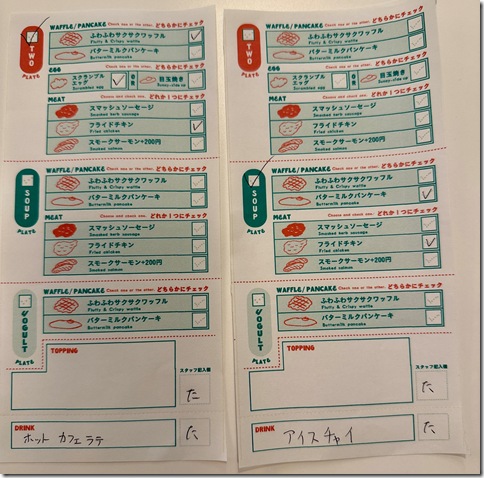 TWO
PLATE
WAFFLE/PANCAKE Choose one or the other. どちらかにチェック
ふわふわサクサクワッフル
Fluffy & Crispy waffle
バターミルクパンケーキ
Buttermilk pancake
EGG Choose one or the other. どちらかにチェック
スクランブルエッグ
Scrambled egg
OR
目玉焼き
Sunny-side up
MEAT Choose and check one. どれか1つにチェック
スマッシュソーセージ
Smashed herb sausage
フライドチキン
Fried chicken
スモークサーモン+200円
Smoked salmon
SOUP
PLATE
WAFFLE/PANCAKE Choose one or the other. どちらかにチェック
ふわふわサクサクワッフル
Fluffy & Crispy waffle
バターミルクパンケーキ
Buttermilk pancake
MEAT Choose and check one. どれか1つにチェック
スマッシュソーセージ
Smashed herb sausage
フライドチキン
Fried chicken
スモークサーモン+200円
Smoked salmon
YOGULT
PLATE
WAFFLE/PANCAKE Choose one or the other. どちらかにチェック
ふわふわサクサクワッフル
Fluffy & Crispy waffle
バターミルクパンケーキ
Buttermilk pancake
TOPPING
スタッフ記入欄
た
DRINK
ホット カフェラテ
た
TWO
PLATE
WAFFLE/PANCAKE Choose one or the other. どちらかにチェック
ふわふわサクサクワッフル
Fluffy & Crispy waffle
バターミルクパンケーキ
Buttermilk pancake
EGG Choose one or the other. どちらかにチェック
スクランブルエッグ
Scrambled egg
OR
目玉焼き
Sunny-side up
MEAT Choose and check one. どれか1つにチェック
スマッシュソーセージ
Smashed herb sausage
フライドチキン
Fried chicken
スモークサーモン+200円
Smoked salmon
SOUP
PLATE
WAFFLE/PANCAKE Choose one or the other. どちらかにチェック
ふわふわサクサクワッフル
Fluffy & Crispy waffle
バターミルクパンケーキ
Buttermilk pancake
MEAT Choose and check one. どれか1つにチェック
スマッシュソーセージ
Smashed herb sausage
フライドチキン
Fried chicken
スモークサーモン+200円
Smoked salmon
YOGULT
PLATE
WAFFLE/PANCAKE Choose one or the other. どちらかにチェック
ふわふわサクサクワッフル
Fluffy & Crispy waffle
バターミルクパンケーキ
Buttermilk pancake
TOPPING
スタッフ記入欄
た
DRINK
アイスチャイ
た